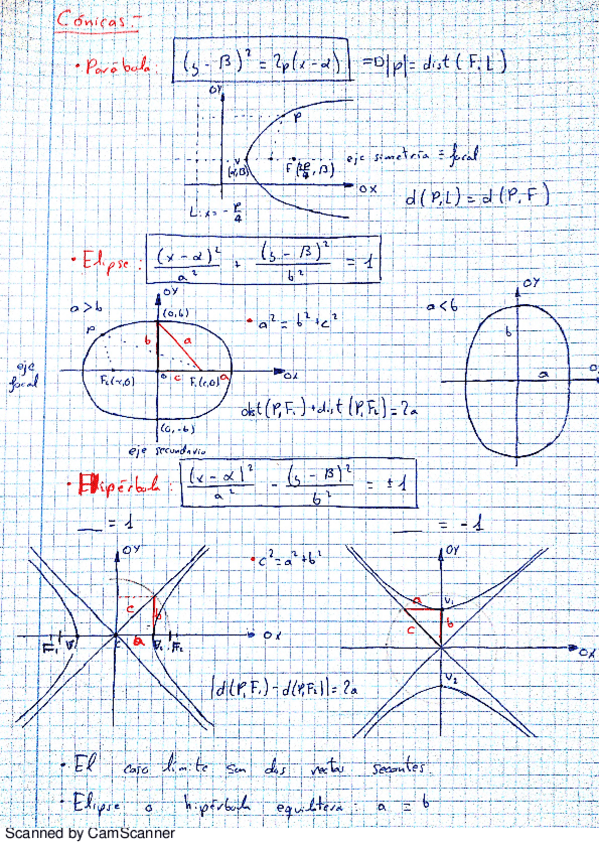 Cónicas.-
• Parábola: (y - β)² = 2p(x - α) ⇒ |p| = dist(F, L)
OY
P
V
(α,β)
F(2p/4, β)
eje simetría ≡ focal
OX
L: x = -p/4
d(P,L) = d(P,F)
• Elipse: (x - α)²/a² + (y - β)²/b² = 1
a>b
OY
(0,b)
• a² = b² + c²
a<b
OY
P
b
a
b
eje focal
F₂(-c,0)
0
c
F₁(c,0)
a
OX
a
dist(P,F₁)+dist(P,F₂)=2a
(0,-b)
eje secundario
• Hipérbola: (x - α)²/a² - (y - β)²/b² = ±1
__ = 1
__ = -1
OY
• c² = a² + b²
OY
c
b
a
V₁
c
b
F₁
V₁
a
V₂
F₂
OX
OX
|d(P,F₁) - d(P,F₂)| = 2a
V₂
• El caso límite son dos rectas secantes.
• Elipse o hipérbola equilátera: a = b
Scanned by CamScanner